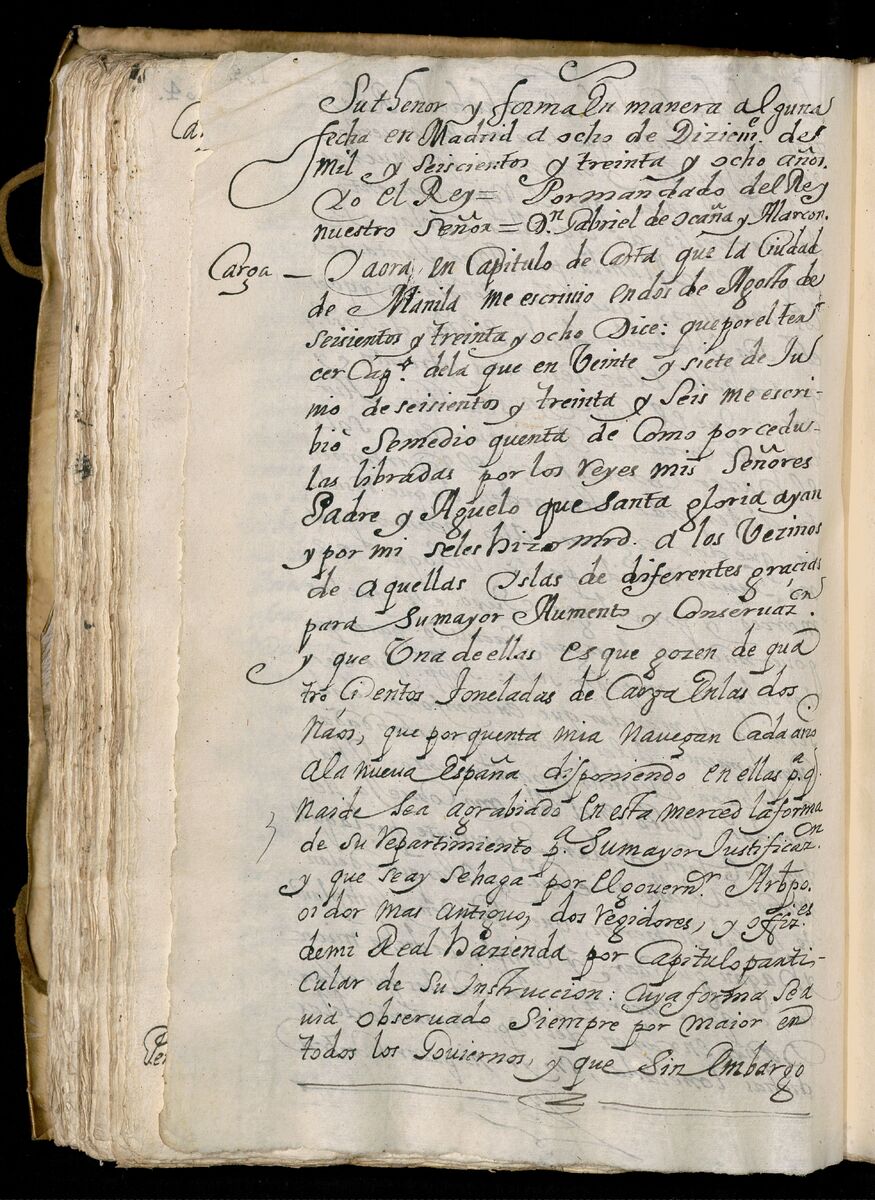 Su thenor y forma En manera alguna
fecha en Madrid a ocho de Diziem.e de
mil y seiscientos y treinta y ocho años.
Yo el Rey = Por mandado del Rey
nuestro Señor = D.n Gabriel de ocaña y Alarcon.
Carga — Y aora, en Capitulo de Carta que la Ciudad
de Manila me escriuio en dos de Agosto de
seisientos y treinta y ocho Dice: que por el ter
cer Cap.o dela que en Veinte y siete de Ju
nio de seisientos y treinta y Seis me escri-
bió Semedio quenta de Como por cedu-
las libradas por los reyes mis Señores
Padre y Aguelo que Santa gloria ayan
y por mi seles hizo mrd. a los Vezinos
de aquellas Yslas de diferentes gracias
para Sumayor Aumento y Conseruaz.on
y que Vna de ellas es que gozen de qua
tro Cientos Toneladas de Carga Enlas dos
Naos, que por quenta mia Nauegan Cada año
ala nueua España disponiendo en ellas p.a q.
Naide Sea agrabiado En esta merced la forma
de su repartimiento p.a Sumayor Justificaz.on
y que seay Sehaga por El gouern.r Arbpo.
oidor mas antiguo, dos regidores, y ofiz.es
demi Real hazienda por Capitulo parti-
cular de Su Instruccion: Cuya forma Sea
uia obseruado Siempre por maior en
todos los Gouiernos, y que Sin Embargo